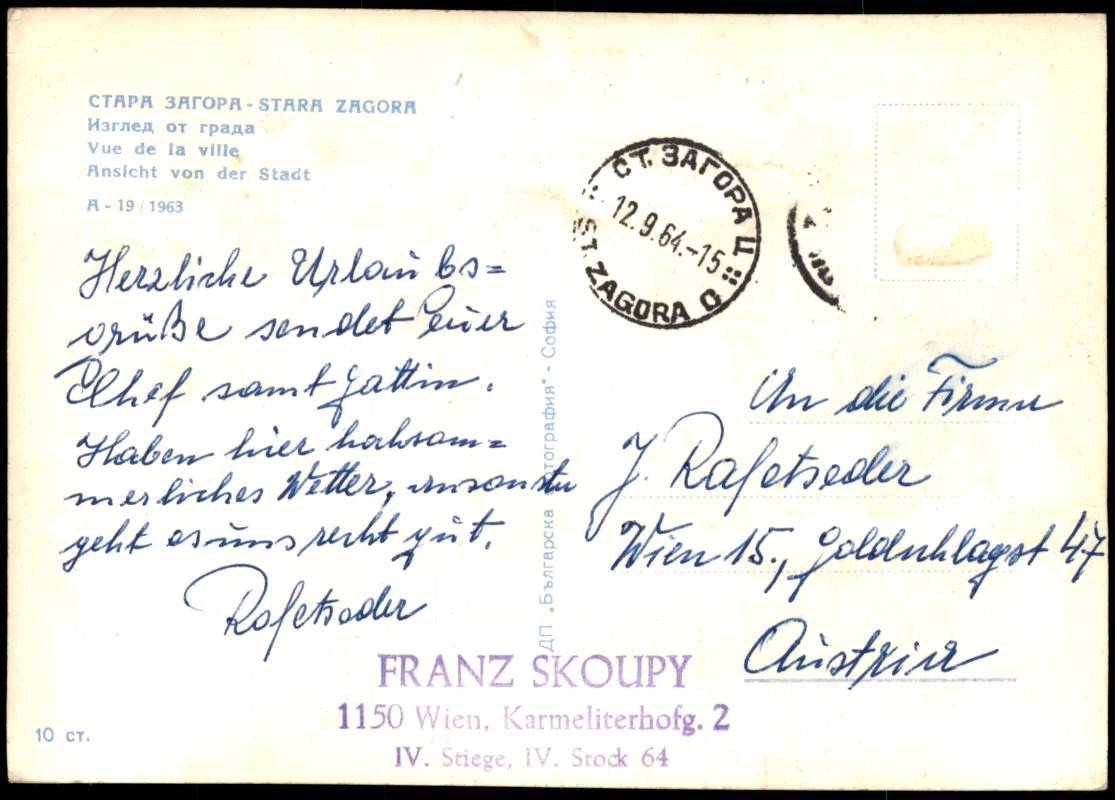 СТАРА ЗАГОРА - STARA ZAGORA
Изглед от града
Vue de la ville
Ansicht von der Stadt
A - 19 / 1963
Herzliche Urlaubs=
grüße sendet Euer
Chef samt Gattin.
Haben hier hochsom=
merliches Wetter, ansonsten
geht es uns recht gut.
Rafetseder
10 ст.
ДП „Българска фотография" - София
СТ. ЗАГОРА Ц
12.9.64.-15
ST. ZAGORA C
An die Firma
J. Rafetseder
Wien 15., Goldschlagst 47
Austria
FRANZ SKOUPY
1150 Wien, Karmeliterhofg. 2
IV. Stiege, IV. Stock 64